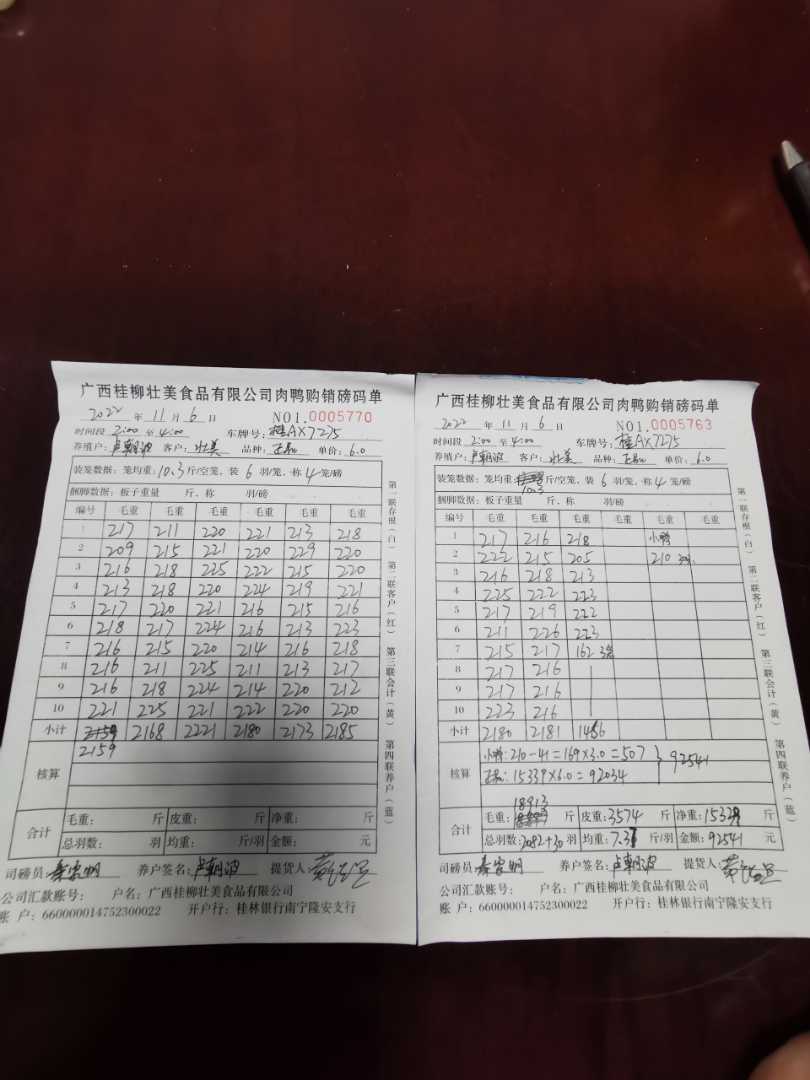 广西桂柳壮美食品有限公司肉鸭购销磅码单
2022 年 11 月 6 日 NO1.0005770
时间段 2:00 至 4:00 车牌号: 桂AX7275
养殖户: 卢朝波 客户: 壮美 品种: 单价: 6.0
装笼数据: 笼均重: 10.3 斤/空笼, 装 6 羽/笼, 称 4 笼/磅
捆脚数据: 板子重量 斤、称 羽/磅
编号 毛重 毛重 毛重 毛重 毛重 毛重
1 217 211 220 221 213 218
2 209 215 221 220 229 220
3 216 218 225 222 215 220
4 213 218 220 224 219 221
5 217 220 221 216 215 216
6 218 217 224 216 213 223
7 216 215 220 214 216 218
8 216 211 225 211 213 217
9 216 218 224 214 220 212
10 221 225 221 222 220 220
小计 2168 2221 2180 2173 2185
2159
核算
合计 毛重: 斤 皮重: 斤 净重: 斤
总羽数: 羽 均重: 斤/羽 金额: 元
司磅员: 养户签名: 卢朝波 提货人:
公司汇款账号: 户名: 广西桂柳壮美食品有限公司
账 户: 660000014752300022 开户行: 桂林银行南宁隆安支行
第一联存根(白) 第二联客户(红) 第三联会计(黄) 第四联养户(蓝)
广西桂柳壮美食品有限公司肉鸭购销磅码单
2022 年 11 月 6 日 NO1.0005763
时间段 2:00 至 4:00 车牌号: 桂AX7275
养殖户: 卢朝波 客户: 壮美 品种: 单价: 6.0
装笼数据: 笼均重: 斤/空笼, 装 6 羽/笼, 称 4 笼/磅
10.3
捆脚数据: 板子重量 斤、称 羽/磅
编号 毛重 毛重 毛重 毛重 毛重 毛重
1 217 216 218 小鸭
2 222 215 205 210
3 216 218 213
4 225 222 223
5 217 219 222
6 211 226 223
7 215 217 162 3笼
8 217 216
9 217 216
10 223 216
小计 2180 2181 1466
小鸭: 210-41=169×3.0=507 } 92541
核算
15339×6.0=92034
18913
合计 毛重: 斤 皮重: 3574 斤 净重: 15339 斤
总羽数: 2082+30 羽 均重: 7.37 斤/羽 金额: 92541 元
司磅员: 养户签名: 卢朝波 提货人:
公司汇款账号: 户名: 广西桂柳壮美食品有限公司
账 户: 660000014752300022 开户行: 桂林银行南宁隆安支行
第一联存根(白) 第二联客户(红) 第三联会计(黄) 第四联养户(蓝)